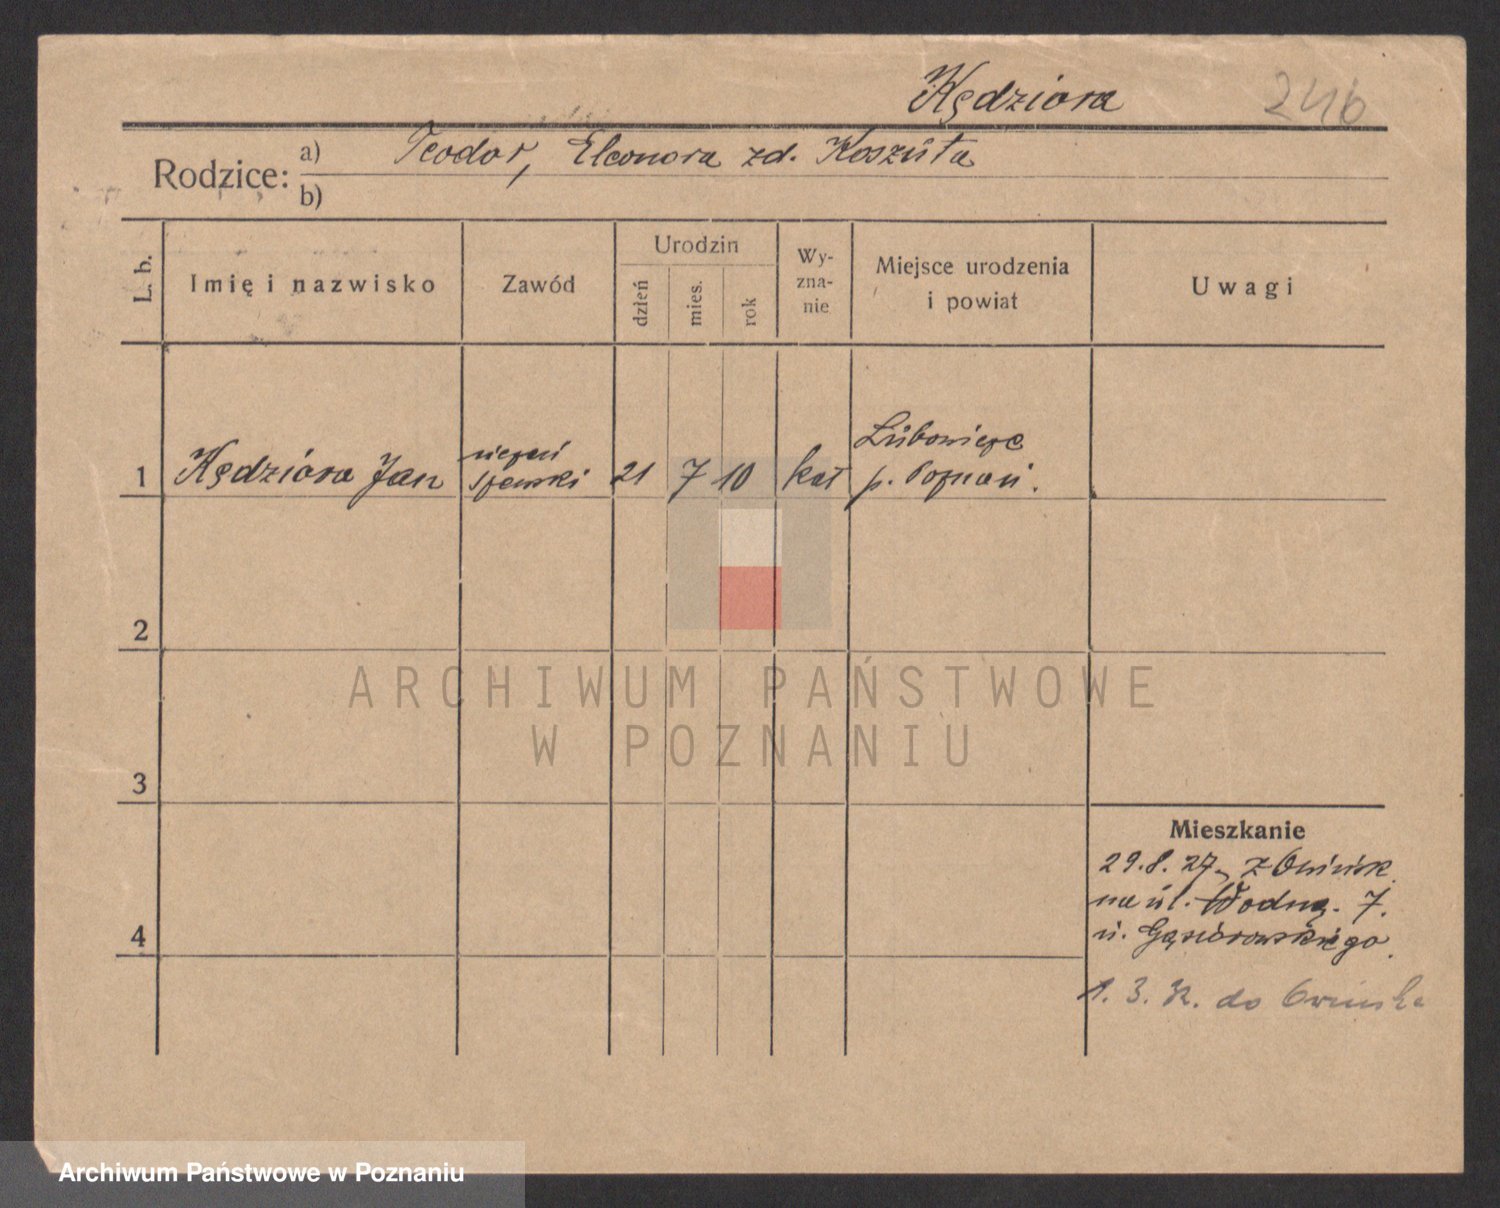 Kędziora 246
Rodzice: a) Teodor, Eleonora zd. Koszuta
b)
L. b. Imię i nazwisko Zawód Urodzin dzień mies. rok Wy-zna-nie Miejsce urodzenia i powiat Uwagi
1 Kędziora Jan uczeń 21 7 10 kat Lubowięce p. Poznań.
2
ARCHIWUM PAŃSTWOWE
W POZNANIU
3
Mieszkanie
29.8.27. z Owińsk
na ul. Wodną. 7.
u. Gąsiorowskiego.
4
1. 3. do Owińska
Archiwum Państwowe w Poznaniu